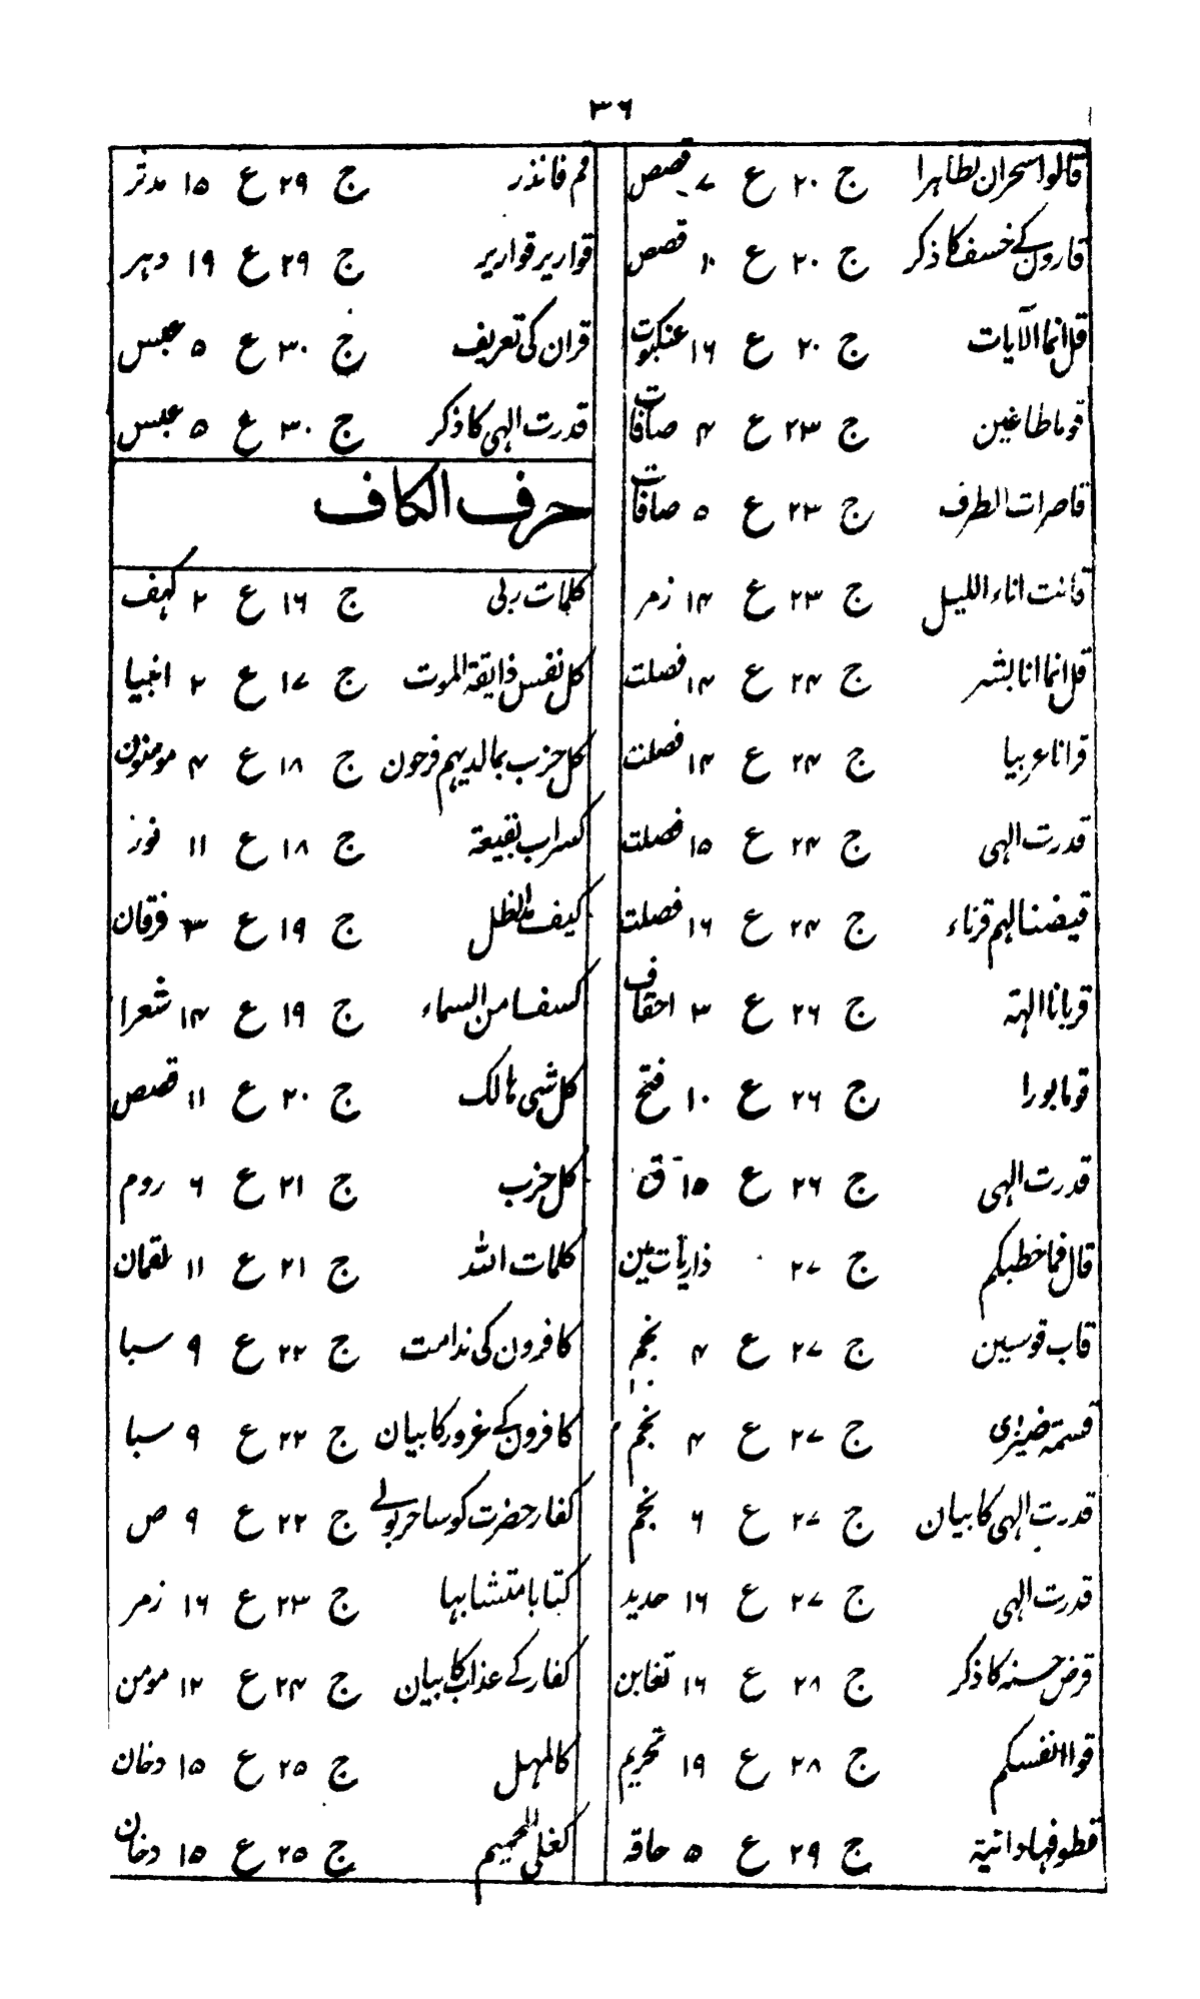 ۳۶
قالوا سحران تظاہرا ج ۲۰ ع ۷ قصص
قارون کے خسف کا ذکر ج ۲۰ ع ۱۰ قصص
قل انما الآیات ج ۲۰ ع ۱۶ عنکبوت
قوما طاغین ج ۲۳ ع ۴ صافات
قاصرات الطرف ج ۲۳ ع ۵ صافات
قانت اناء اللیل ج ۲۳ ع ۱۴ زمر
قل انما انا بشر ج ۲۴ ع ۱۴ فصلت
قرانا عربیا ج ۲۴ ع ۱۴ فصلت
قدرت الہی ج ۲۴ ع ۱۵ فصلت
قیضنا لہم قرناء ج ۲۴ ع ۱۶ فصلت
قربانا الہۃ ج ۲۶ ع ۳ احقاف
قوما بورا ج ۲۶ ع ۱۰ فتح
قدرت الہی ج ۲۶ ع ۱۵ ق
قال فما خطبکم ج ۲۷ ذاریات مین
قاب قوسین ج ۲۷ ع ۴ نجم
قسمۃ ضیزی ج ۲۷ ع ۴ نجم
قدرت الہی کا بیان ج ۲۷ ع ۶ نجم
قدرت الہی ج ۲۷ ع ۱۶ حدید
قرض حسنہ کا ذکر ج ۲۸ ع ۱۶ تغابن
قوا انفسکم ج ۲۸ ع ۱۹ تحریم
قطوفہا دانیۃ ج ۲۹ ع ۵ حاقہ
قم فانذر ج ۲۹ ع ۱۵ مدثر
قواریر قواریر ج ۲۹ ع ۱۹ دہر
قران کی تعریف ج ۳۰ ع ۵ عبس
قدرت الہی کا ذکر ج ۳۰ ع ۵ عبس
حرف الکاف
کلمات ربی ج ۱۶ ع ۲ کہف
کل نفس ذایقۃ الموت ج ۱۷ ع ۲ انبیا
کل حزب بما لدیہم فرحون ج ۱۸ ع ۴ مومنون
کسراب بقیعۃ ج ۱۸ ع ۱۱ نور
کیف مد الظل ج ۱۹ ع ۳ فرقان
کسفا من السماء ج ۱۹ ع ۱۴ شعرا
کل شی ہالک ج ۲۰ ع ۱۱ قصص
کل حزب ج ۲۱ ع ۶ روم
کلمات اللہ ج ۲۱ ع ۱۱ لقمان
کافرون کی ندامت ج ۲۲ ع ۹ سبا
کافرون کے غرور کا بیان ج ۲۲ ع ۹ سبا
کفار حضرت کو ساحر بولے ج ۲۲ ع ۹ ص
کتابا متشابہا ج ۲۳ ع ۱۶ زمر
کفار کے عذاب کا بیان ج ۲۴ ع ۱۲ مومن
کالمہل ج ۲۵ ع ۱۵ دخان
کغلی الحمیم ج ۲۵ ع ۱۵ دخان